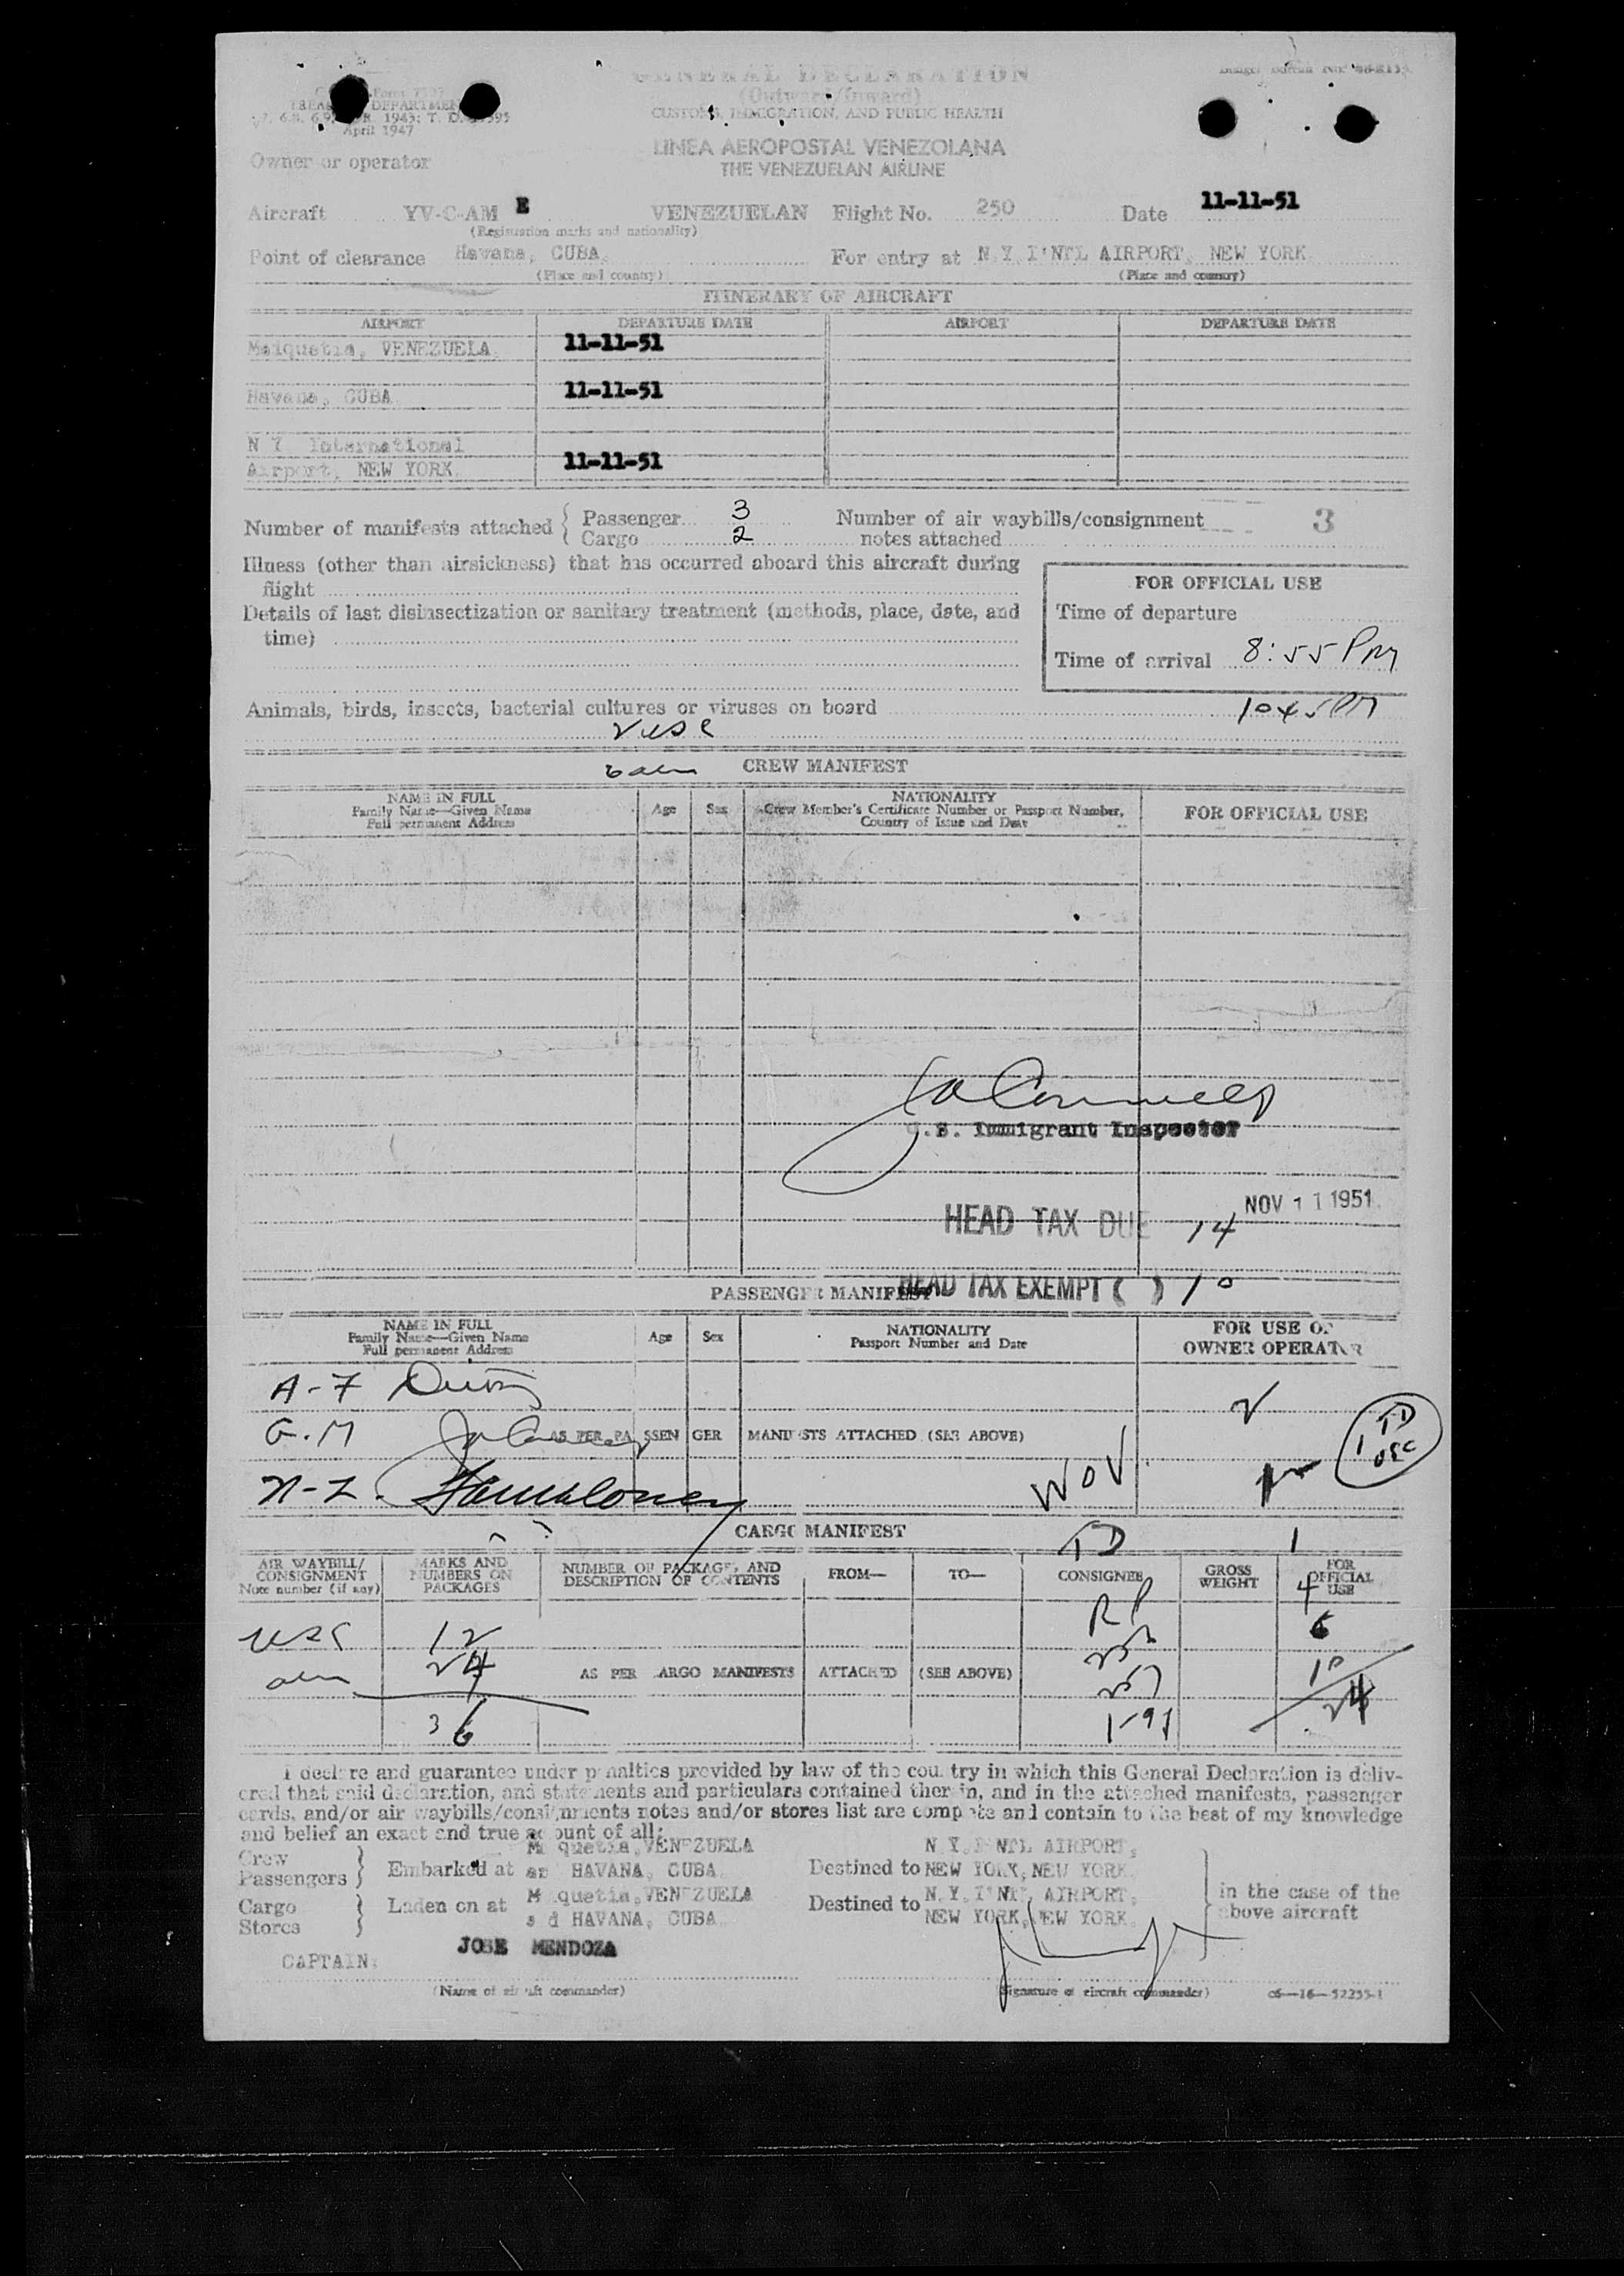 GENERAL DECLARATION
(Outward/Inward)
CUSTOMS, IMMIGRATION, AND PUBLIC HEALTH
TREASURY DEPARTMENT
April 1947
LINEA AEROPOSTAL VENEZOLANA
THE VENEZUELAN AIRLINE
Owner or operator
Aircraft YV-C-AM E VENEZUELAN Flight No. 250 Date 11-11-51
(Registration marks and nationality)
Point of clearance Havana, CUBA. For entry at N.Y. I'NTL AIRPORT, NEW YORK
(Place and country) (Place and country)
ITINERARY OF AIRCRAFT
AIRPORT DEPARTURE DATE AIRPORT DEPARTURE DATE
Maiquetia, VENEZUELA. 11-11-51
Havana, CUBA 11-11-51
N Y International
Airport, NEW YORK. 11-11-51
Number of manifests attached { Passenger 3 Number of air waybills/consignment 3
Cargo 2 notes attached
Illness (other than airsickness) that has occurred aboard this aircraft during
flight
FOR OFFICIAL USE
Details of last disinsectization or sanitary treatment (methods, place, date, and
time)
Time of departure
Time of arrival 8:55 PM
Animals, birds, insects, bacterial cultures or viruses on board 1045PM
CREW MANIFEST
NAME IN FULL
Family Name—Given Name
Full permanent Address
Age Sex
NATIONALITY
Crew Member's Certificate Number or Passport Number,
Country of Issue and Date
FOR OFFICIAL USE
U.S. Immigrant Inspector
NOV 11 1951
HEAD TAX DUE 14
HEAD TAX EXEMPT ( ) 10
PASSENGER MANIFEST
NAME IN FULL
Family Name—Given Name
Full permanent Address
Age Sex
NATIONALITY
Passport Number and Date
FOR USE OF
OWNER OPERATOR
A-F
G-M AS PER PASSENGER MANIFESTS ATTACHED (SEE ABOVE)
1 TD USC
N-Z WOV
CARGO MANIFEST TD 1
AIR WAYBILL/
CONSIGNMENT
Note number (if any)
MARKS AND
NUMBERS ON
PACKAGES
NUMBER OF PACKAGES AND
DESCRIPTION OF CONTENTS
FROM— TO— CONSIGNEE
GROSS
WEIGHT
FOR
OFFICIAL
USE
4
RP 6
USC 12
24 AS PER CARGO MANIFESTS ATTACHED (SEE ABOVE) 10
24
36
I declare and guarantee under penalties provided by law of the country in which this General Declaration is deliv-
ered that said declaration, and statements and particulars contained therein, and in the attached manifests, passenger
cards, and/or air waybills/consignments notes and/or stores list are complete and contain to the best of my knowledge
and belief an exact and true account of all:
Crew
Passengers } Embarked at Maiquetia, VENEZUELA and HAVANA, CUBA. Destined to N.Y. I'NTL AIRPORT, NEW YORK, NEW YORK.
Cargo
Stores } Laden on at Maiquetia, VENEZUELA and HAVANA, CUBA. Destined to N.Y. I'NTL AIRPORT, NEW YORK, NEW YORK.
in the case of the
above aircraft
CAPTAIN: JOSE MENDOZA
(Name of aircraft commander) (Signature of aircraft commander)